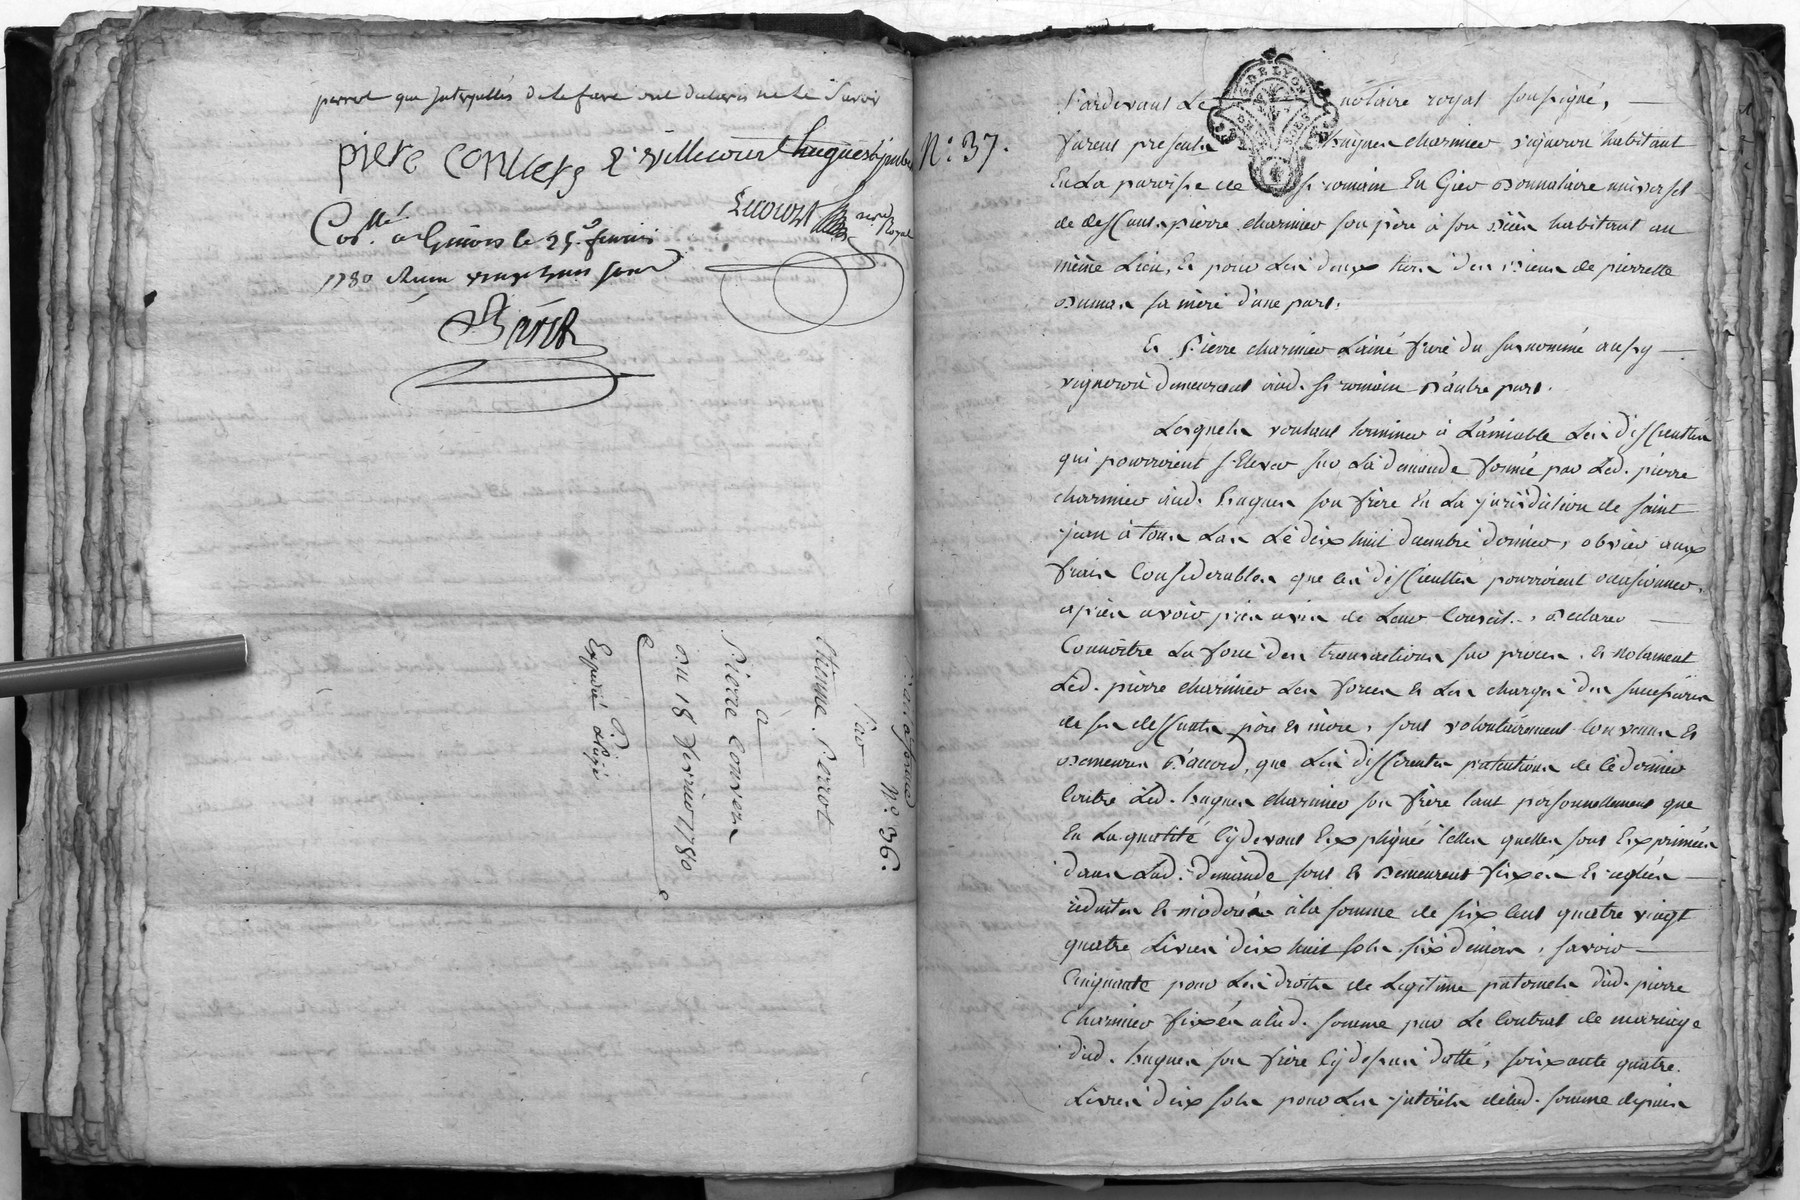 perrot que Interpellés de le faire ont declarés ne le Savoir
piere convers E Villecourt hugues
Lucourt nere Royal
Con.lé à Givors le 25.e fevrier
1780 Reçu
Baret
N.o 36.
Par
Etienne Perrot
à
Pierre Convers
Du 18 fevrier 1780
Expedié
N.o 37.
G. DE LYON
Pardevant Le notaire royal soussigné,
furent presents hugues charmier vigneron habitant
En La paroisse de St romain En Gier Donnataire universel
de deffunt pierre charmier son père à son vivant habitant au
même Lieu, Et pour Les deux tiers des biens de pierrette
Dumas sa mère d'une part.
Et Pierre charmier Lainé frère du surnommé aussy
vigneron demeurant aud. St romain D'autre part.
Lesquels voulant terminer à L'amiable Les difficultés
qui pourroient s'Elever sur La demande formée par Led. pierre
charmier aud. hugues son frère En La jurisdiction de saint
jean à Le dix huit decembre dernier, obvier aux
frais Considerables que les difficultés pourroient occasionner,
après avoir pris avis de Leur Conseil, Declarer
Connoitre La force des transactions sur procès. Et notament
Led. pierre charmier Les forces Et Les charges des successions
de ses deffunts père Et mère, sont volontairement Convenus Et
Demeurés D'accord, que Les differentes petentions de ce dernier
Contre Led. hugues charmier son frère tant personnellement que
En La qualité Cy devant Expliquée telles quelles sont Exprimées
dans Lad. demande sont Et Demeurent fixées Et reglées
réduites Et modérées à la somme de six Cent quatre vingt
quatre Livres dix huit sols six deniers, savoir
Cinquante pour Les droits de Legitime paternels dud. pierre
Charmier fixés a lad. somme par Le Contrat de mariage
dud. hugues son frère Cy dessus datté, soixante quatre
Livres dix sols pour Les jntérêts de lad. somme depuis